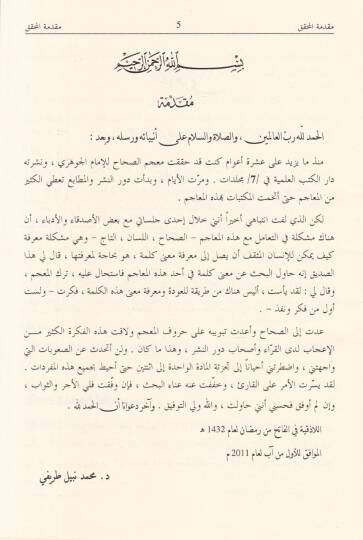 مقدمة المحقق 5 مقدمة المحقق
بسم الله الرحمن الرحيم
مقدمة
الحمد لله ربّ العالمين، والصلاة والسلام على أنبيائه ورسله، وبعد:
منذ ما يزيد على عشرة أعوام كنت قد حققت معجم الصحاح للإمام الجوهري، ونشرته
دار الكتب العلمية في /7/ مجلدات. ومرّت الأيام، وبدأت دور النشر والمطابع تعطي الكثير
من المعاجم حتى أتخمت المكتبات بهذه المعاجم.
لكن الذي لفت انتباهي أخيراً أنني خلال إحدى جلساتي مع بعض الأصدقاء والأدباء، أن
هناك مشكلة في التعامل مع هذه المعاجم – الصحاح، اللسان، التاج – وهي مشكلة معرفة
كيف يمكن للإنسان المثقف أن يصل إلى معرفة معنى كلمة، هو بحاجة لمعرفتها، قال لي هذا
الصديق إنه حاول البحث عن معنى كلمة في أحد هذه المعاجم فاستحال عليه، ترك المعجم،
وقال لي: لقد يأست، أليس هناك من طريقة للعودة ومعرفة معنى هذه الكلمة، فكرت – ولست
أول من فكر ونفذ – .
عدت إلى الصحاح وأعدت تبويبه على حروف المعجم ولاقت هذه الفكرة الكثير مـــن
الإعجاب لدى القرّاء وأصحاب دور النشر، وهذا ما كان. ولن أتحدث عن الصعوبات التي
واجهتني، واضطرتني أحياناً إلى تجزئة المادة الواحدة إلى اثنتين حتى أحيط بجميع هذه المفردات.
لقد يسّرت الأمر على القارئ، وخفّفت عنه عناء البحث، فإن وفّقت فلي الأجر والثواب،
وإن لم أوفق فحسبي أنني حاولت، والله ولي التوفيق. وآخر دعوانا أن الحمد لله.
اللاذقية في الفاتح من رمضان لعام 1432 هـ
الموافق للأول من آب لعام 2011 م
د. محمد نبيل طريفي